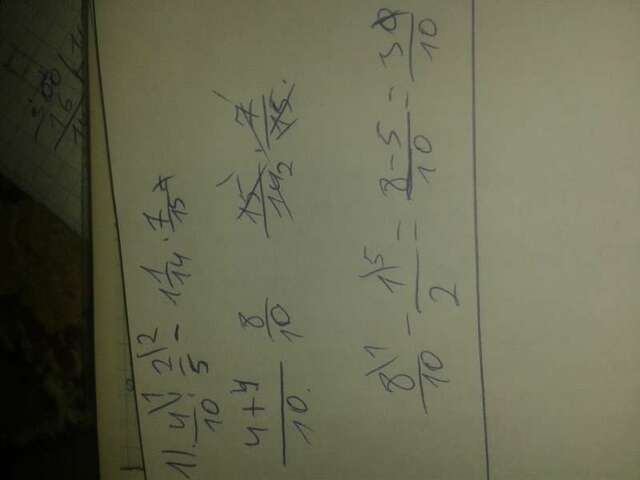 1). 4\1/10 . 2\2/5 - 1 1/14 . 7/15
4+4/10. 8/10 15/14 2 . 7/15.
8\1/10 - 1\5/2 = 8-5/10 = 3/10